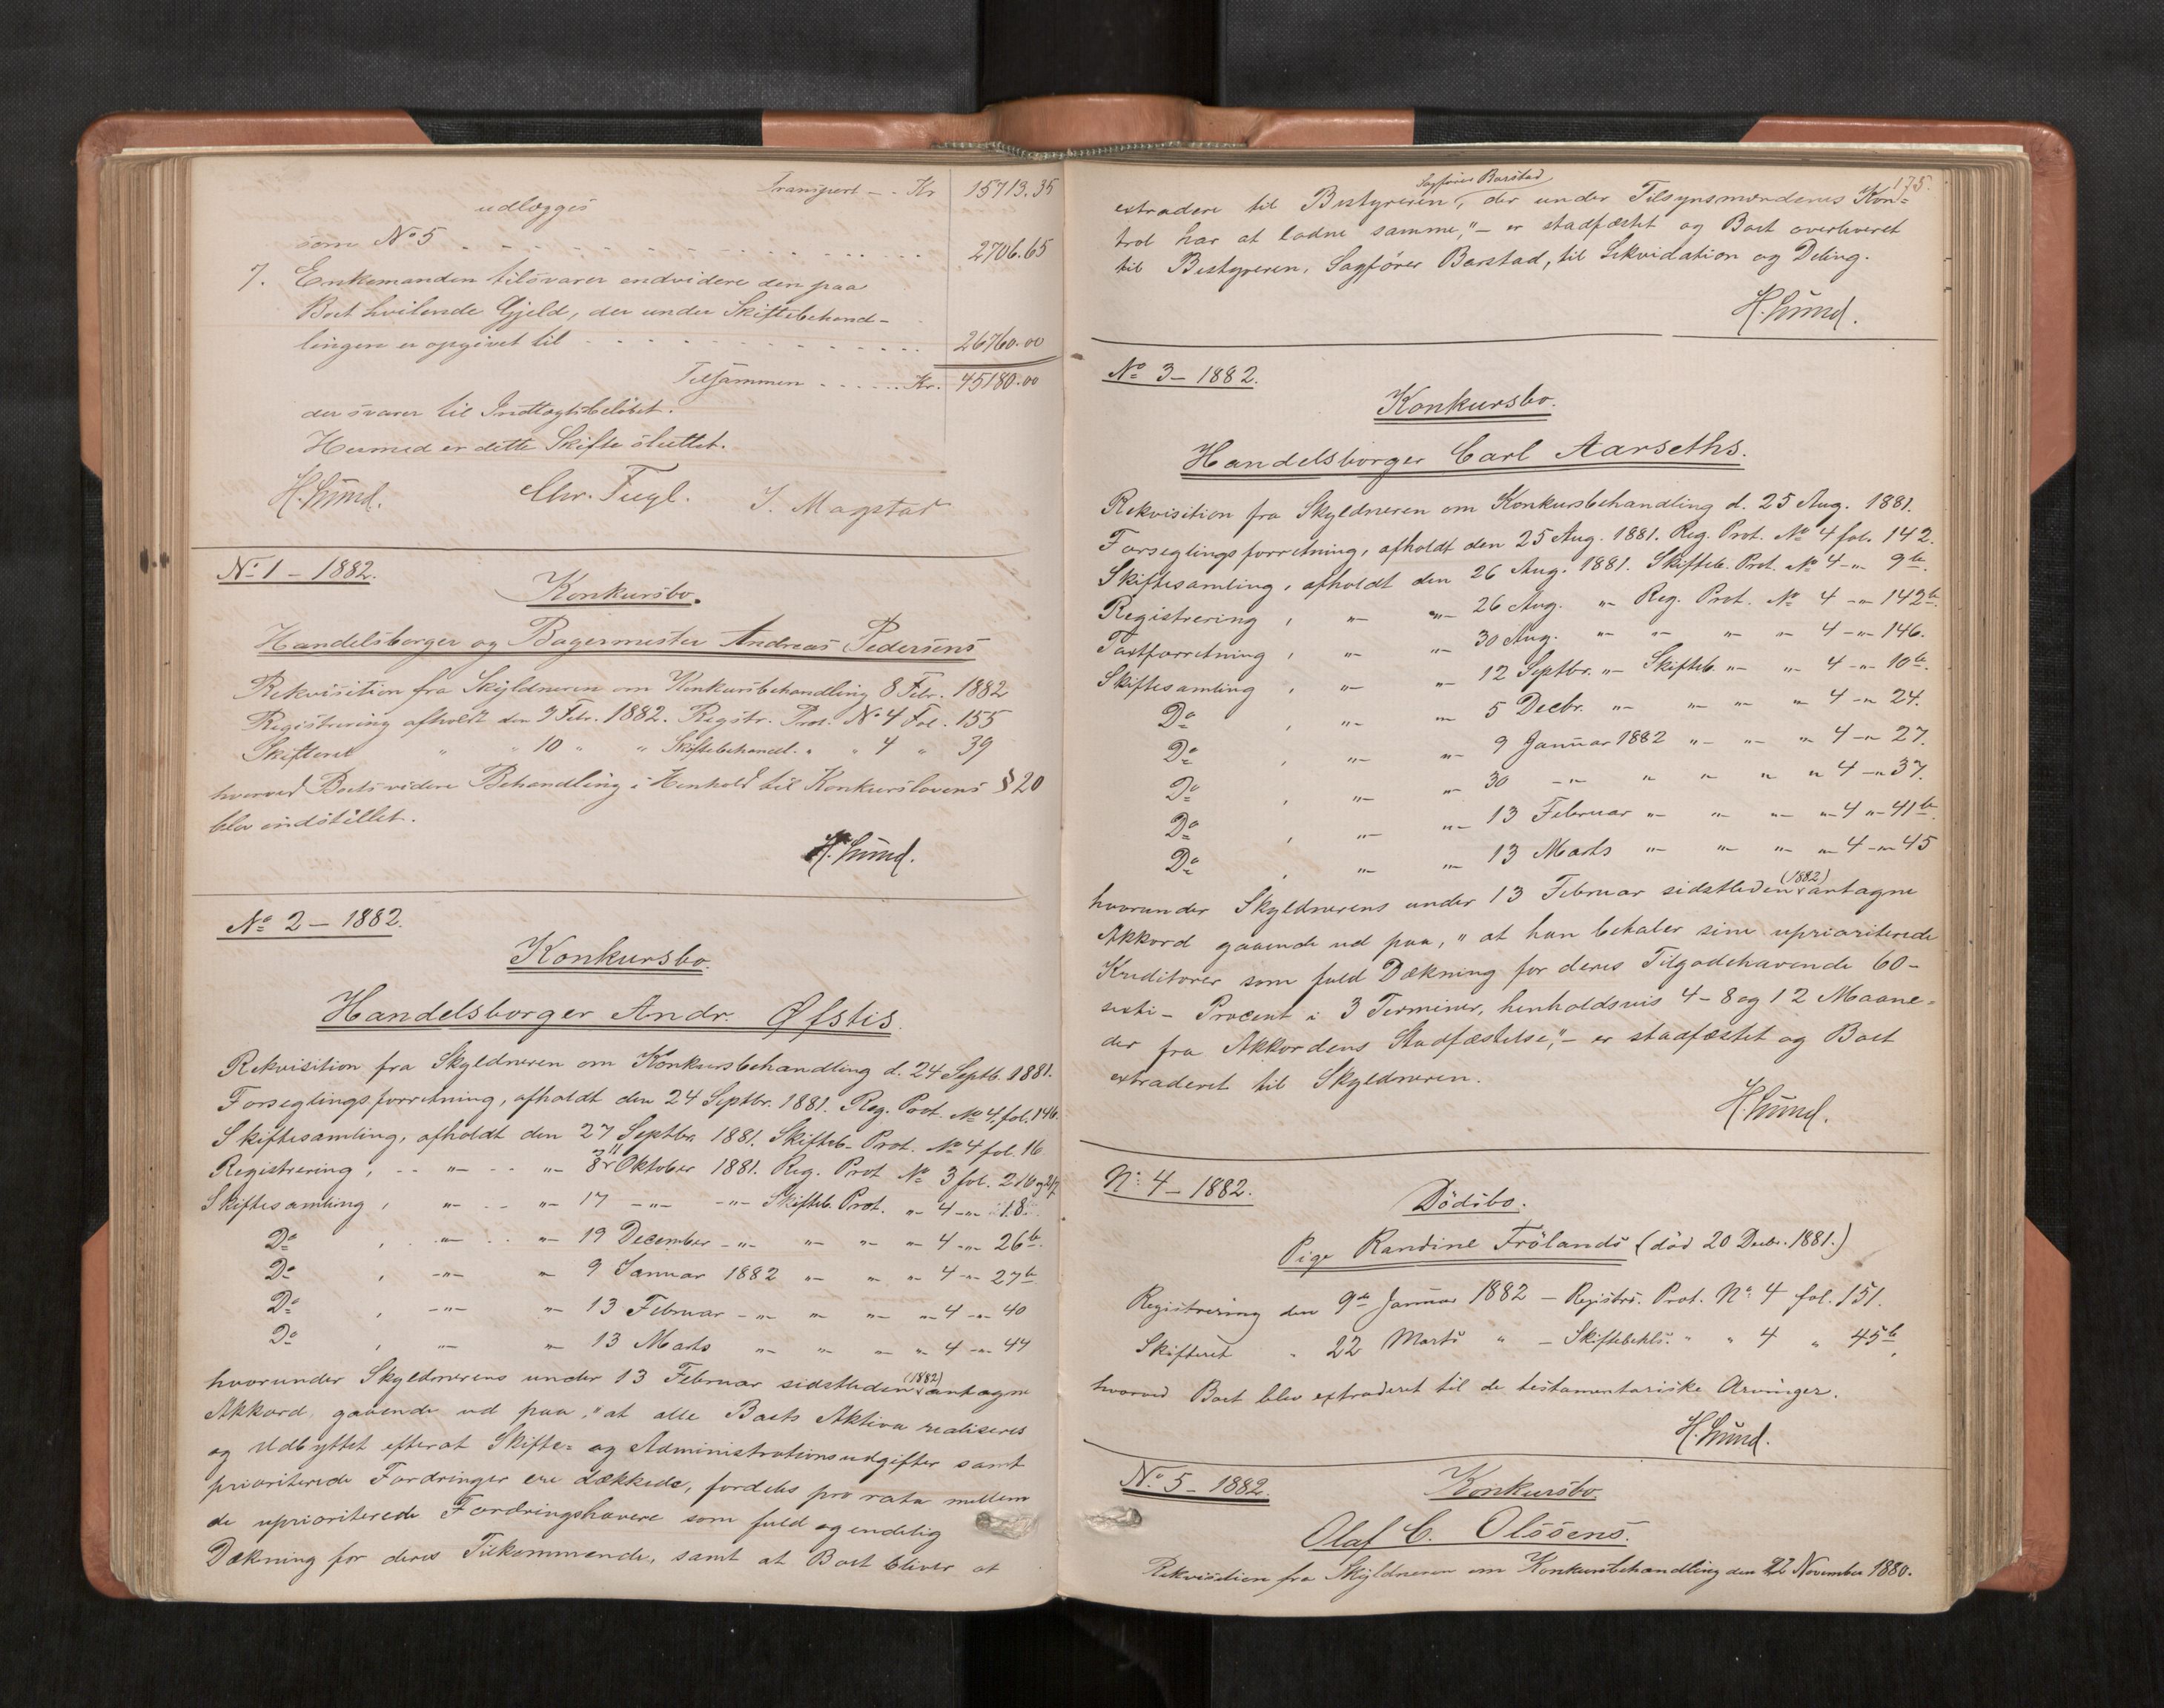 Transport - . Kr 15713.35
udlægges
som No 5 . . . . . 2706.65
7. Enkemanden tilsvarer endvidere den paa
Boet hvilende Gjeld, der under Skiftebehand-
lingen er opgivet til . . . . . 26760.00
Tilsammen . . . . . Kr. 45180.00
der svarer til Indtægtsbeløbet.
Hermed er dette Skifte sluttet.
H. Lund. Chr. Fugl. J. Magstad
No 1 - 1882.
Konkursbo.
Handelsborger og Bagermester Andreas Pedersens
Rekvisition fra Skyldneren om Konkursbehandling 8 Febr. 1882
Registrering afholdt den 9 Febr. 1882. Registr. Prot. No 4 Fol. 155
Skifteret " " 10 " " Skiftebehandl. " " 4 " 39
hvorved Boets videre Behandling i Henhold til Konkurslovens § 20
blev indstillet.
H. Lund.
No 2 - 1882.
Konkursbo.
Handelsborger Andr. Øfstis.
Rekvisition fra Skyldneren om Konkursbehandling d. 24 Septb. 1881.
Forseglingsforretning, afholdt den 24 Septbr. 1881. Reg. Prot. No 4 fol. 146.
Skiftesamling, afholdt den 27 Septbr. 1881. Skifteb. Prot. No 4 fol. 16
Registrering, - " - " 8 Oktober 1881. Reg. Prot No 3 fol. 216 og 217
Skiftesamling, " - " 17 - " - " - Skifteb. Prot. " 4 - " 18.
Do , " - " 19 December - " - " " " 4 - " 26b.
Do , - " - " 9 Januar 1882 " - " " 4 - " 27b
Do , - " - " 13 Februar - " - " " " 4 - " 40
Do , " - " 13 Marts " - " " " 4 - " 44
hvorunder Skyldnerens under 13 Februar sidstleden (1882) antagne
Akkord, gaaende ud paa, "at alle Boets Aktiva realiseres
og Udbyttet efterat Skifte- og Administrationsudgifter samt
prioriterede Fordringer ere dækkede, fordeles pro rata mellem
de uprioriterede Fordringshavere som fuld og endelig
Dækning for deres Tilkommende, samt at Boet bliver at
175.
Sagfører Barstad
extradere til Bestyreren, der under Tilsynsmændenes Kon-
trol har at ordne samme," - er stadfæstet og Boet overleveret
til Bestyreren, Sagfører Barstad, til Likvidation og Deling.
H. Lund.
No 3 - 1882.
Konkursbo.
Handelsborger Carl Aarseths.
Rekvisition fra Skyldneren om Konkursbehandling d. 25 Aug. 1881.
Forseglingsforretning, afholdt den 25 Aug. 1881. Reg. Prot. No 4 fol. 142.
Skiftesamling, afholdt den 26 Aug. 1881. Skifteb. Prot. No 4 - " 9b.
Registrering , " - " 26 Aug. " Reg. Prot. No 4 - " 142b.
Taxtforretning , " - " 30 Aug. " - " - " " 4 - " 146.
Skiftesamling , " - " 12 Septbr. " - Skifteb. " - " 4 - " 10b.
Do , " - " 5 Decbr. " - " " " 4 - " 24.
Do , " - " 9 Januar 1882 " - " - " 4 - " 27.
Do , " - " 30 - " " " " " 4 - " 37.
Do , " - " 13 Februar " - " " - " 4 - " 41b.
Do , " - " 13 Marts " - " " - " 4 - " 45
hvorunder Skyldnerens under 13 Februar sidstleden (1882) antagne
Akkord gaaende ud paa, "at han betaler sine uprioriterede
Kreditorer som fuld Dækning for deres Tilgodehavende 60 -
sexti - Procent i 3 Terminer, henholdsvis 4 - 8 og 12 Maane-
der fra Akkordens Stadfæstelse," - er stadfæstet og Boet
extraderet til Skyldneren.
H. Lund.
No 4 - 1882.
Dödsbo.
Pige Randine Frölands (död 20 Decbr. 1881.)
Registrering den 9de Januar 1882 - Registr. Prot. No 4 fol. 151.
Skifteret " 22 Marts " - Skiftebehls. " " 4 " 45b,
hvorved Boet blev extraderet til de testamentariske Arvinger.
H. Lund.
No 5 - 1882.
Konkursbo.
Olaf C. Olssens.
Rekvisition fra Skyldneren om Konkursbehandling den 22 November 1880.